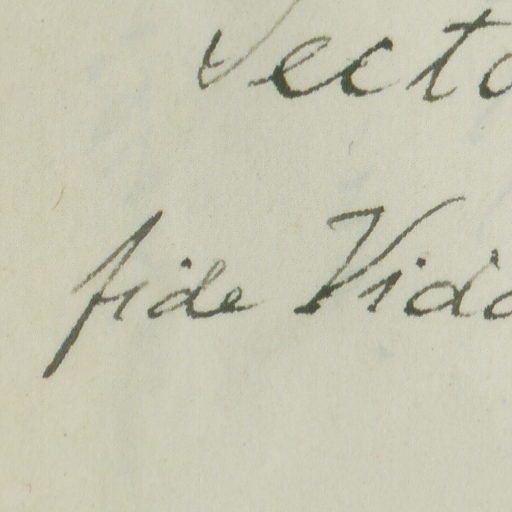 Vecto
fide Vido